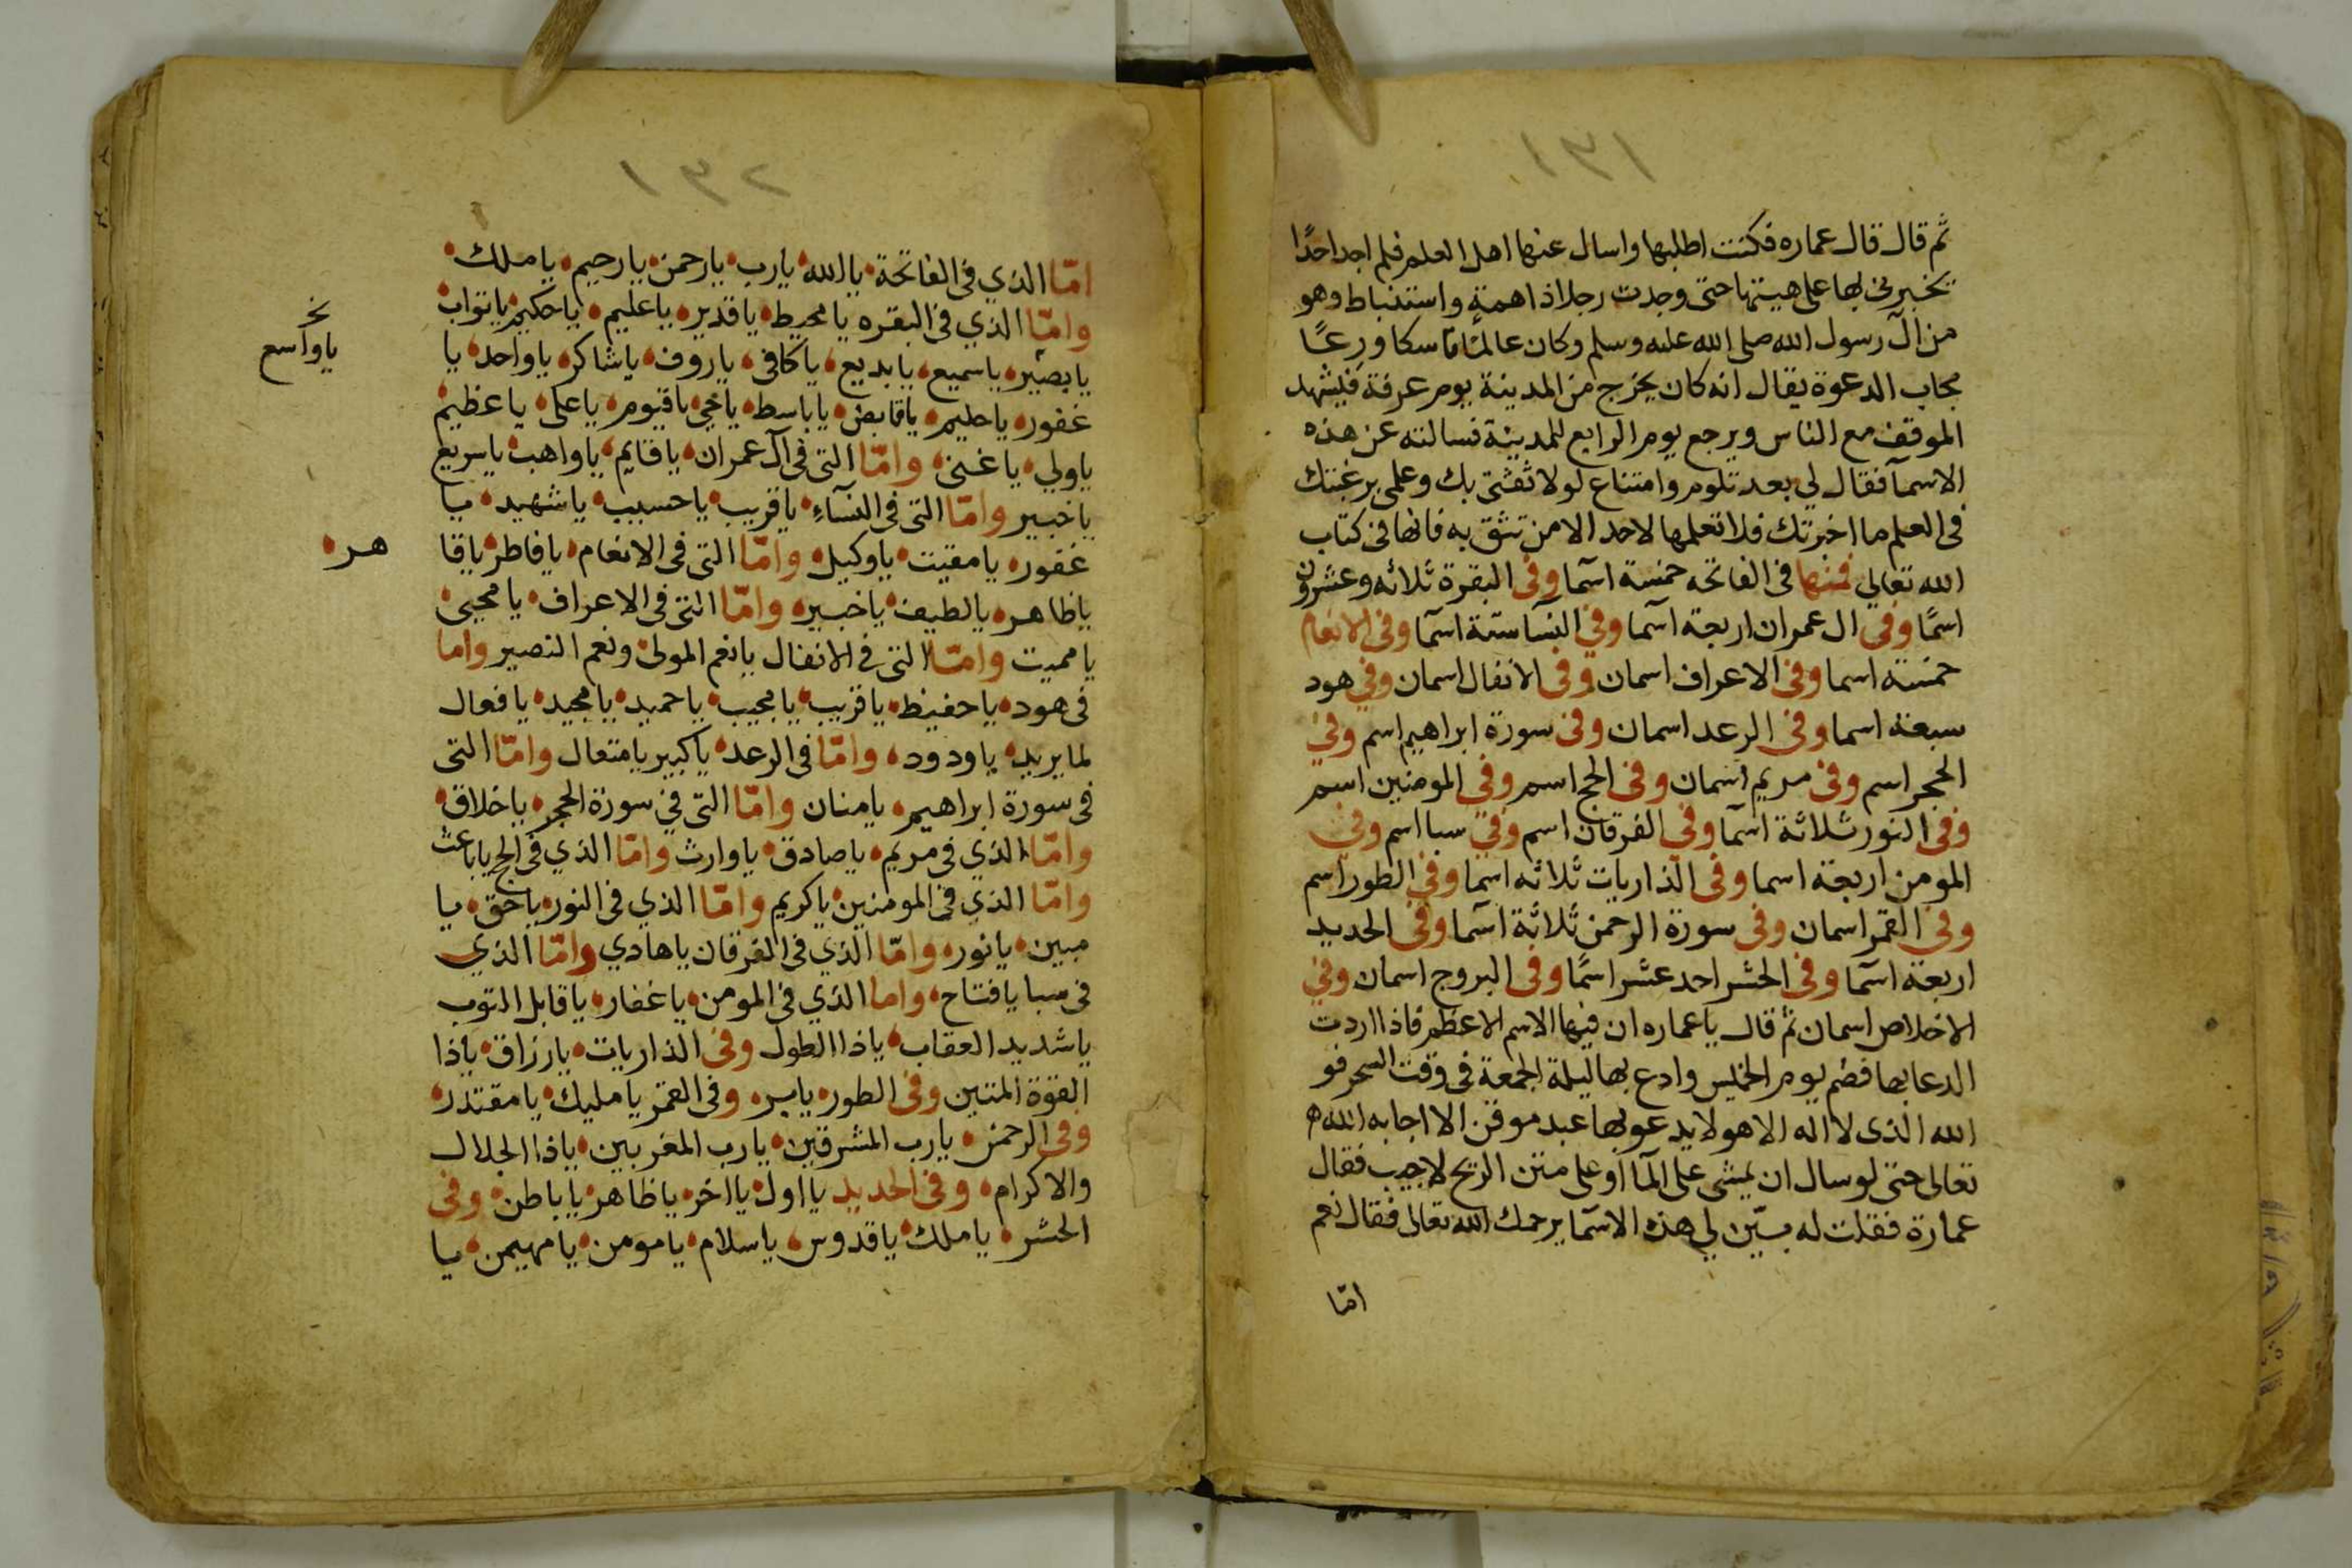 ١٣١
ثم قال قال عماره فكنت اطلبها واسال عنها اهل العلم فلم اجد احدًا
يخبرنى بها على هيئتها حتى وجدت رجلا ذا همةٍ واستنباط وهو
من ال رسول الله صلى الله عليه وسلم وكان عالمًا ناسكا ورعًا
مجاب الدعوة يقال انه كان يخرج من المدينة يوم عرفة فيشهد
الموقف مع الناس ويرجع يوم الرابع للمدينة فسالته عن هذه
الاسمآ فقال لي بعد تلوم وامتناع لولا ثقتى بك وعلمى برغبتك
فى العلم ما اخبرتك فلا تعلمها لاحد الا من تثق به فانها فى كتاب
الله تعالى فمنها فى الفاتحه خمسة اسما وفى البقرة ثلاثه وعشرون
اسمًا وفى ال عمران اربعة اسما وفي النسا ستة اسما وفى الانعام
خمسة اسما وفى الاعراف اسمان وفى الانفال اسمان وفي هود
سبعة اسما وفى الرعد اسمان وفى سورة ابراهيم اسم وفي
الحجر اسم وفى مريم اسمان وفى الحج اسم وفى المومنين اسم
وفى النور ثلاثة اسما وفى الفرقان اسم وفي سبا اسم وفي
المومن اربعة اسما وفى الذاريات ثلاثه اسما وفي الطور اسم
وفى القمر اسمان وفى سورة الرحمن ثلاثة اسما وفى الحديد
اربعة اسما وفى الحشر احد عشر اسمًا وفى البروج اسمان وفي
الاخلاص اسمان ثم قال يا عماره ان فيها الاسم الاعظم فاذا اردت
الدعا بها فصم يوم الخميس وادع بها ليلة الجمعة فى وقت السحر فو
الله الذى لا اله الا هو لا يدعو بها عبد موقن الا اجابه الله
تعالى حتى لو سال ان يمشى على المآ او على متن الريح لاجيب فقال
عمارة فقلت له بيّن لي هذه الاسما يرحمك الله تعالى فقال نعم
امّا
١٣٢
امّا الذي فى الفاتحة يا الله يا رب يا رحمن يا رحيم يا ملك
وامّا الذي فى البقره يا محيط يا قدير يا عليم يا حكيم يا تواب
يا بصير يا سميع يا بديع يا كافى يا روف يا شاكر يا واحد يا
غفور يا حليم يا قابض يا باسط يا حي يا قيوم يا على يا عظيم
يا ولي يا غنى وامّا التى فى آل عمران يا قايم يا واهب يا سريع
يا خبير وامّا التى فى النسآء يا قريب يا حسيب يا شهيد يا
غفور يا مقيت يا وكيل وامّا التى فى الانعام يا فاطر يا قا
هر
يا ظاهر يا لطيف يا خبير وامّا التى فى الاعراف يا محيى
يا مميت وامّا التى فى الانفال يا نعم المولى ونعم النصير واما
فى هود يا حفيظ يا قريب يا مجيب يا حميد يا مجيد يا فعال
لما يريد يا ودود وامّا فى الرعد يا كبير يا متعال وامّا التى
فى سورة ابراهيم يا منان وامّا التى فى سورة الحجر يا خلاق
وامّا الذي فى مريم يا صادق يا وارث وامّا الذي فى الحج يا باعث
وامّا الذي فى المومنين يا كريم وامّا الذي فى النور يا حق يا
مبين يا نور وامّا الذي فى الفرقان يا هادي وامّا الذي
فى سبا يا فتاح واما الذي فى المومن يا غفار يا قابل التوب
يا شديد العقاب يا ذا الطول وفى الذاريات يا رزاق يا ذا
القوة المتين وفى الطور يا بر وفى القمر يا مليك يا مقتدر
وفى الرحمن يا رب المشرقين يا رب المغربين يا ذا الجلال
والاكرام وفى الحديد يا اول يا اخر يا ظاهر يا باطن وفى
الحشر يا ملك يا قدوس يا سلام يا مومن يا مهيمن يا
يا واسع